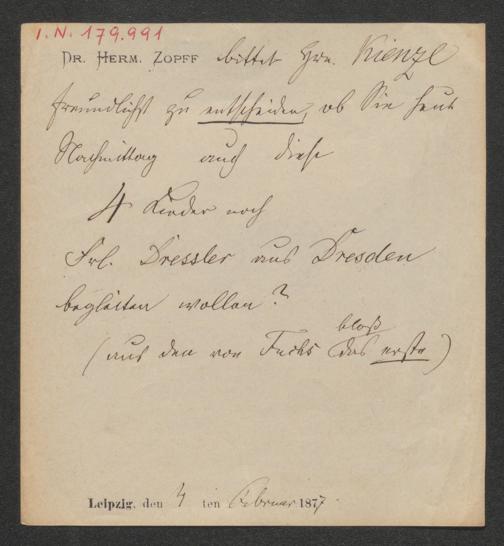 I. N. 179.991
DR. HERM. ZOPFF bittet Hrn. Kienzl
freundlichst zu entscheiden, ob Sie heut
Nachmittag auch diese
4 Lieder noch
Frl. Dressler aus Dresden
begleiten wollen?
bloß
(aus den von Fuchs das erste)
Leipzig, den 4 ten Februar 1877.